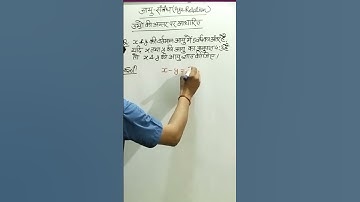 आयु संबंध (Age Relation)
उम्रों के अन्तर पर आधारित
x व y की वर्तमान आयु में 5 वर्ष का अंतर है,
यदि x तथा y की आयु का अनुपात
तो x व y की आयु ज्ञात कीजिए।
Sol!
x - y =